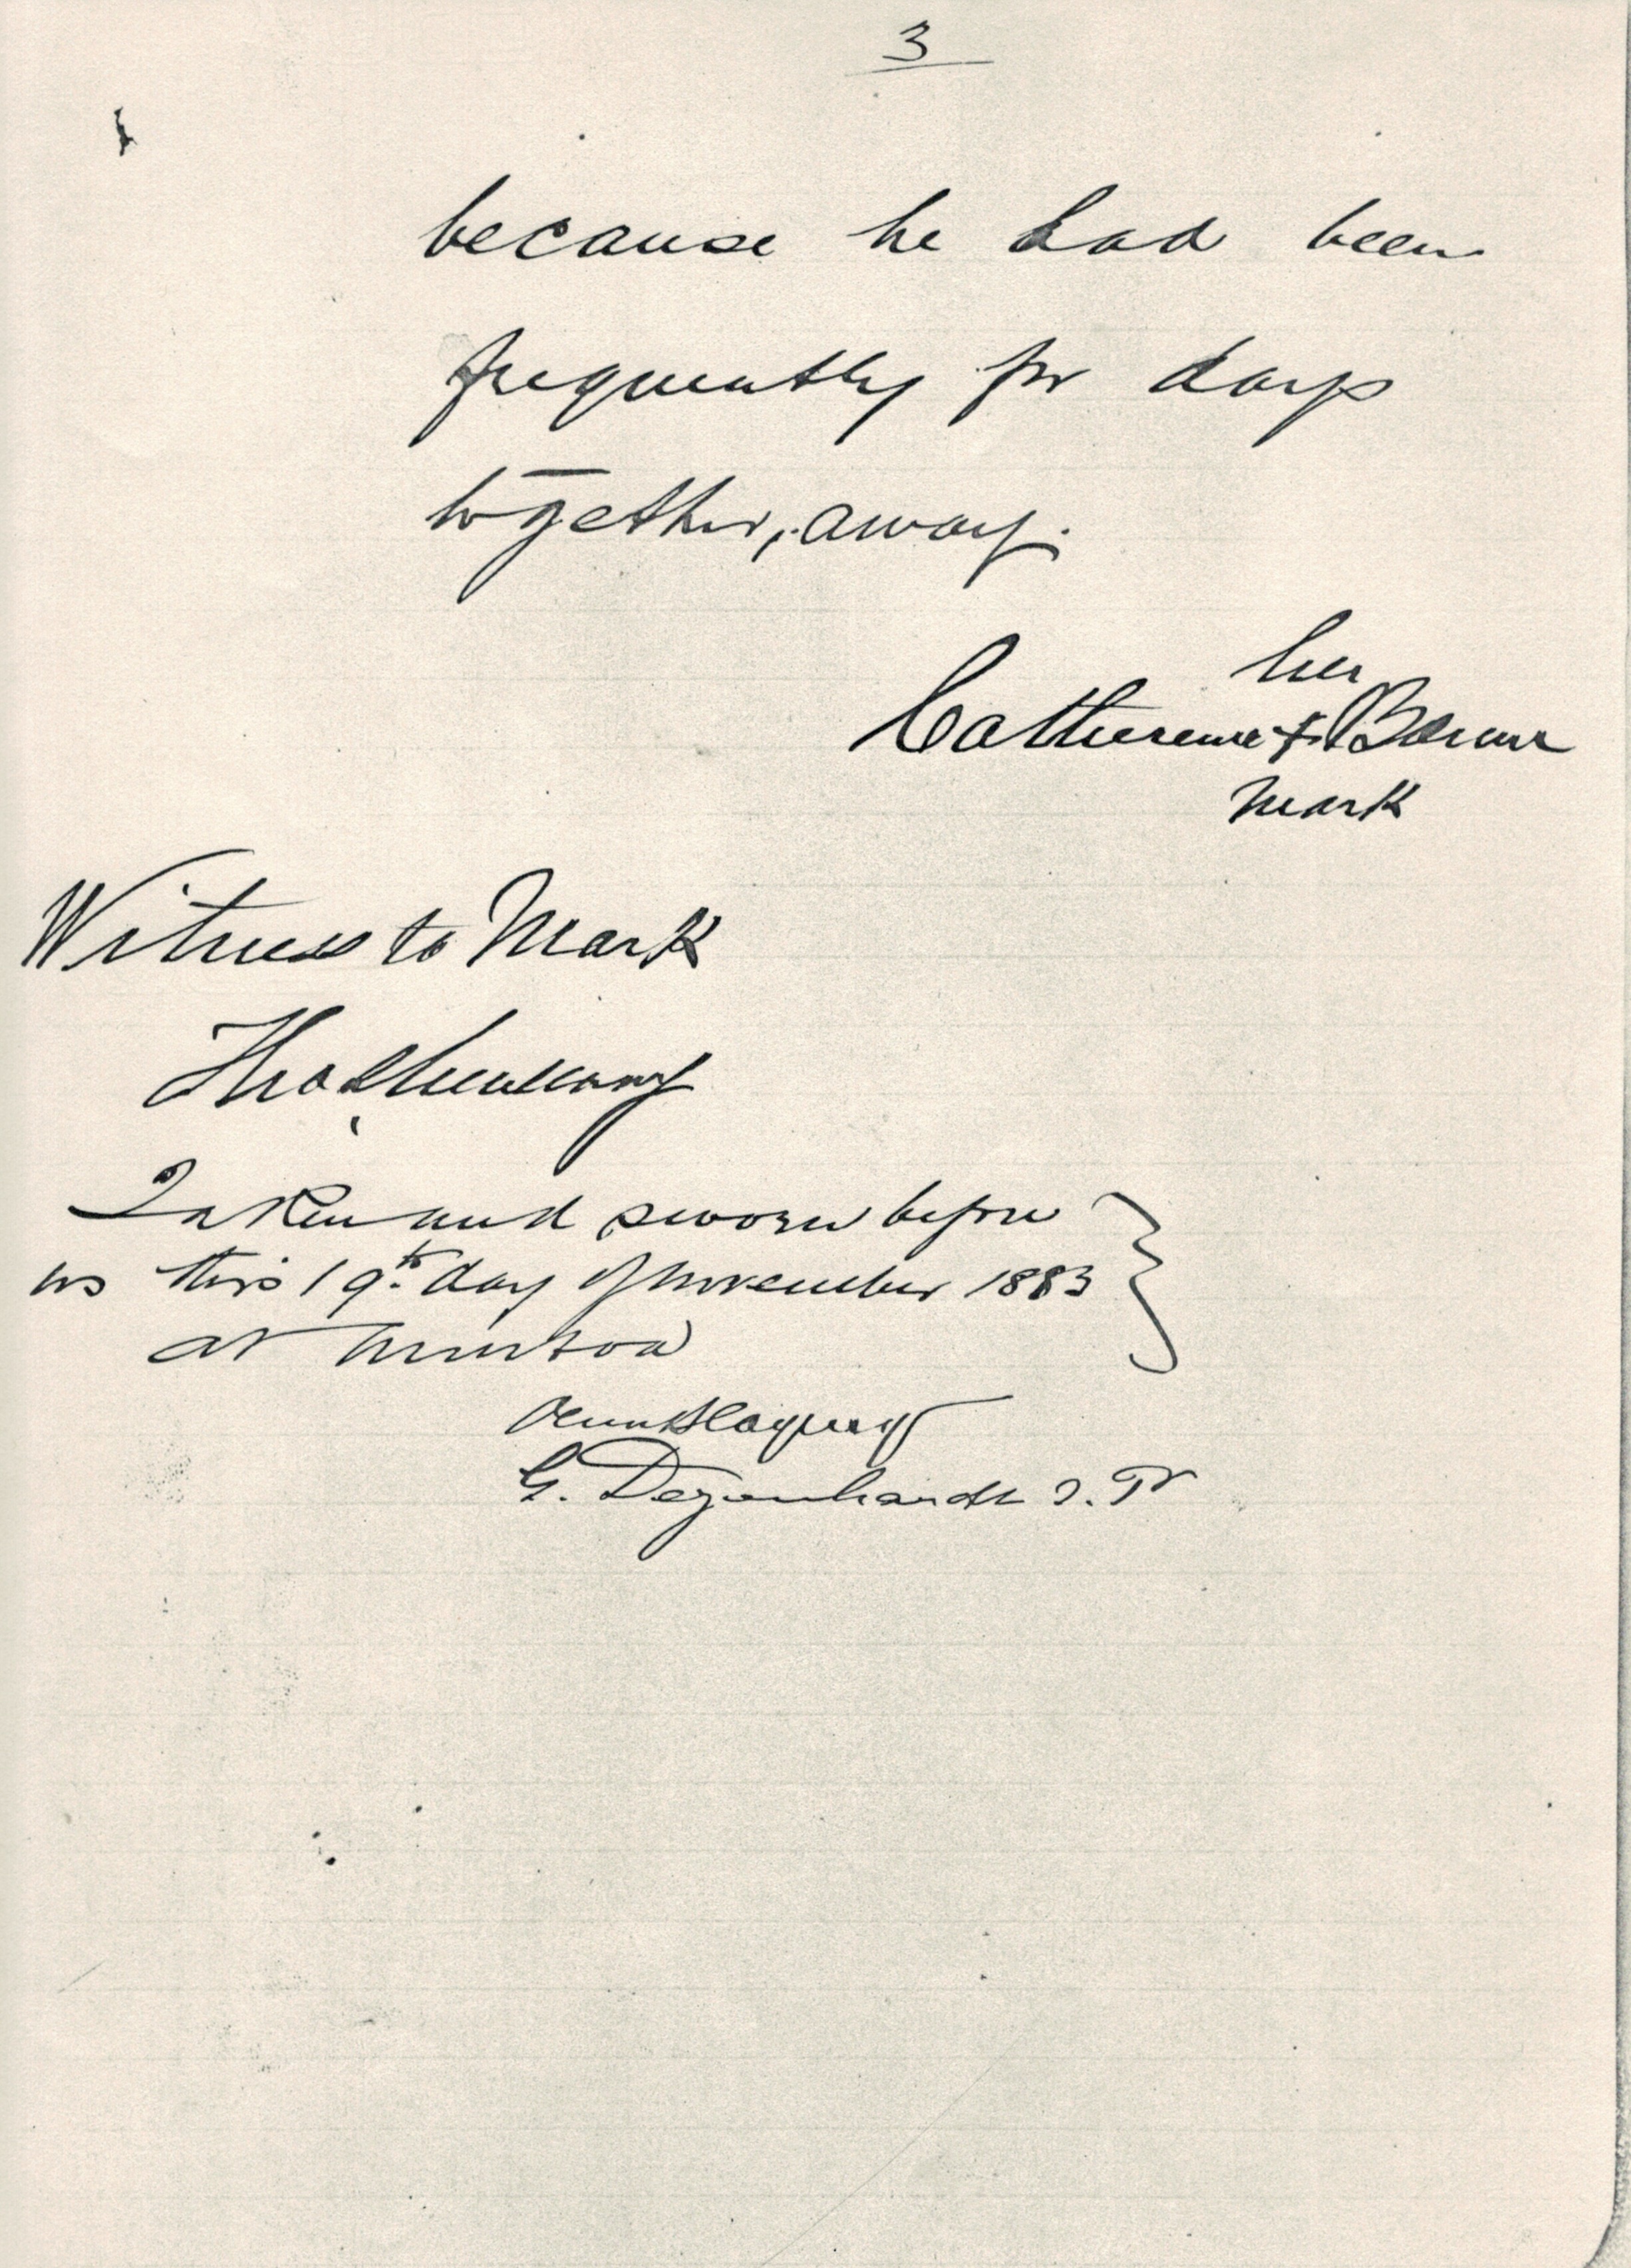 3
because he had been
frequently for days
together, away.
her
Catherine +
mark
Witness to Mark
Taken and sworn before
us this 19th day of November 1883
at
G. Degenhardt J.P